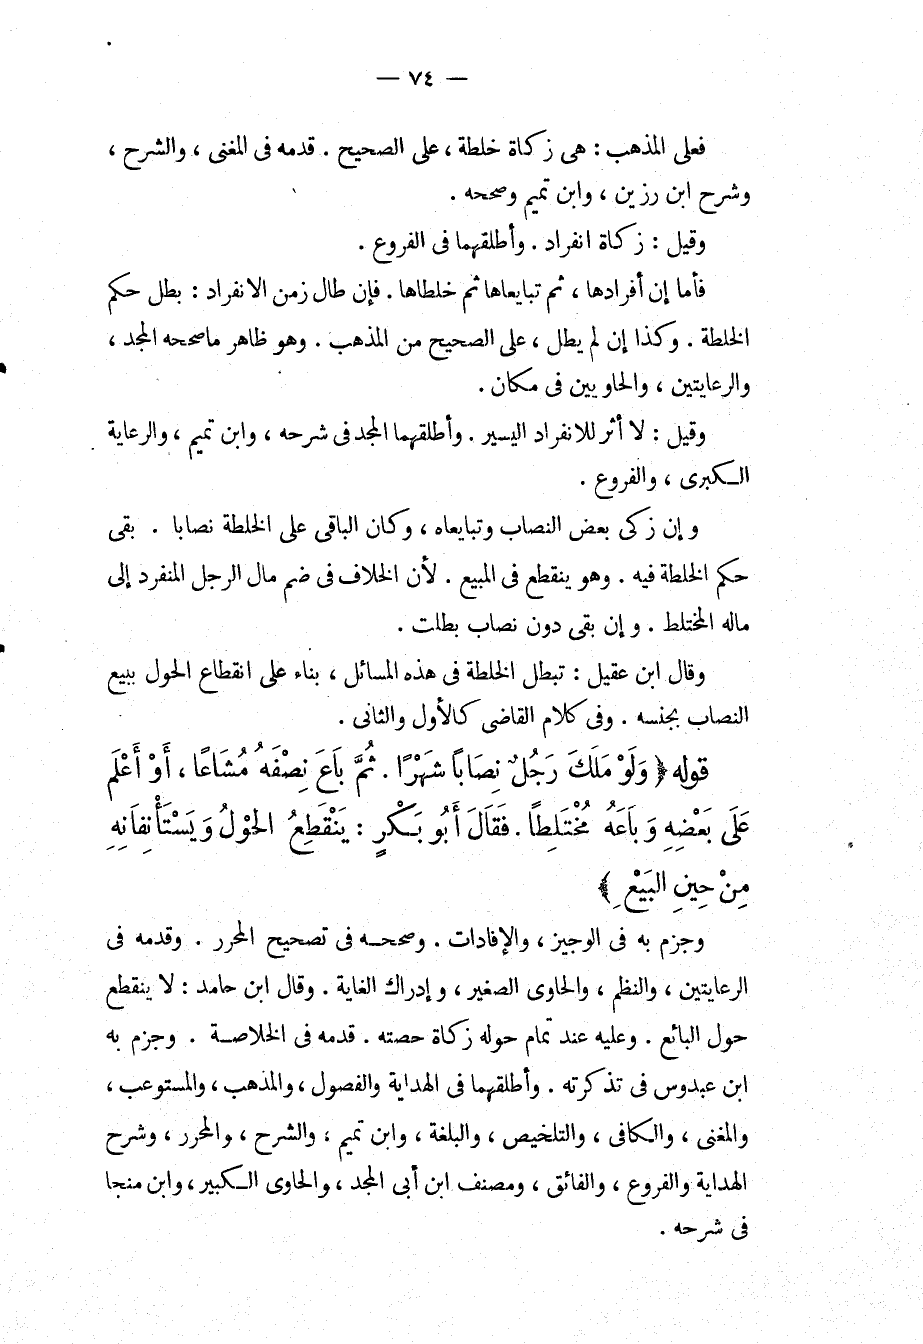 — ٧٤ —
فعلى المذهب : هى زكاة خلطة ، على الصحيح . قدمه فى المغنى ، والشرح ،
وشرح ابن رزين ، وابن تميم وصححه .
وقيل : زكاة انفراد . وأطلقهما فى الفروع .
فأما إن أفرادها ، ثم تبايعاها ثم خلطاها . فإن طال زمن الانفراد : بطل حكم
الخلطة . وكذا إن لم يطل ، على الصحيح من المذهب . وهو ظاهر ماصححه المجد ،
والرعايتين ، والحاويين فى مكان .
وقيل : لا أثر للانفراد اليسير . وأطلقهما المجد فى شرحه ، وابن تميم ، والرعاية
الكبرى ، والفروع .
وإن زكى بعض النصاب وتبايعاه ، وكان الباقى على الخلطة نصابا . بقى
حكم الخلطة فيه . وهو ينقطع فى المبيع . لأن الخلاف فى ضم مال الرجل المنفرد إلى
ماله المختلط . وإن بقى دون نصاب بطلت .
وقال ابن عقيل : تبطل الخلطة فى هذه المسائل ، بناء على انقطاع الحول ببيع
النصاب بجنسه . وفى كلام القاضى كالأول والثانى .
قوله ﴿ وَلَوْ مَلَكَ رَجُلٌ نِصَاباً شَهْرًا . ثُمَّ بَاعَ نِصْفَهُ مُشَاعًا ، أَوْ أَعْلَمَ
عَلَى بَعْضِهِ وَبَاعَهُ مُخْتَلِطًا . فَقَالَ أَبُو بَكْرٍ : يَنْقَطِعُ الحَوْلُ وَيَسْتَأْنِفَانِهِ
مِنْ حِينِ البَيْعِ ﴾
وجزم به فى الوجيز ، والإفادات . وصححه فى تصحيح المحرر . وقدمه فى
الرعايتين ، والنظم ، والحاوى الصغير ، وإدراك الغاية . وقال ابن حامد : لا ينقطع
حول البائع . وعليه عند تمام حوله زكاة حصته . قدمه فى الخلاصة . وجزم به
ابن عبدوس فى تذكرته . وأطلقهما فى الهداية والفصول ، والمذهب ، والمستوعب ،
والمغنى ، والكافى ، والتلخيص ، والبلغة ، وابن تميم ، والشرح ، والمحرر ، وشرح
الهداية والفروع ، والفائق ، ومصنف ابن أبى المجد ، والحاوى الكبير ، وابن منجا
فى شرحه .